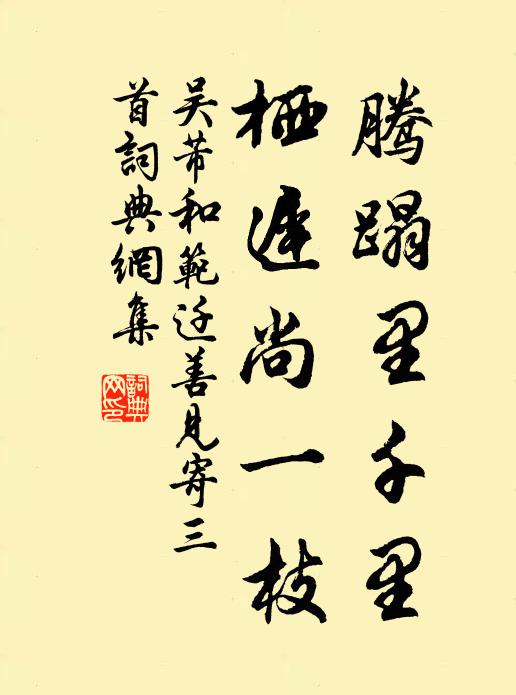 騰蹋里千里
栖遲尚一枝
吴芾和範迁善見寄三
首詞典網集
詞典網印